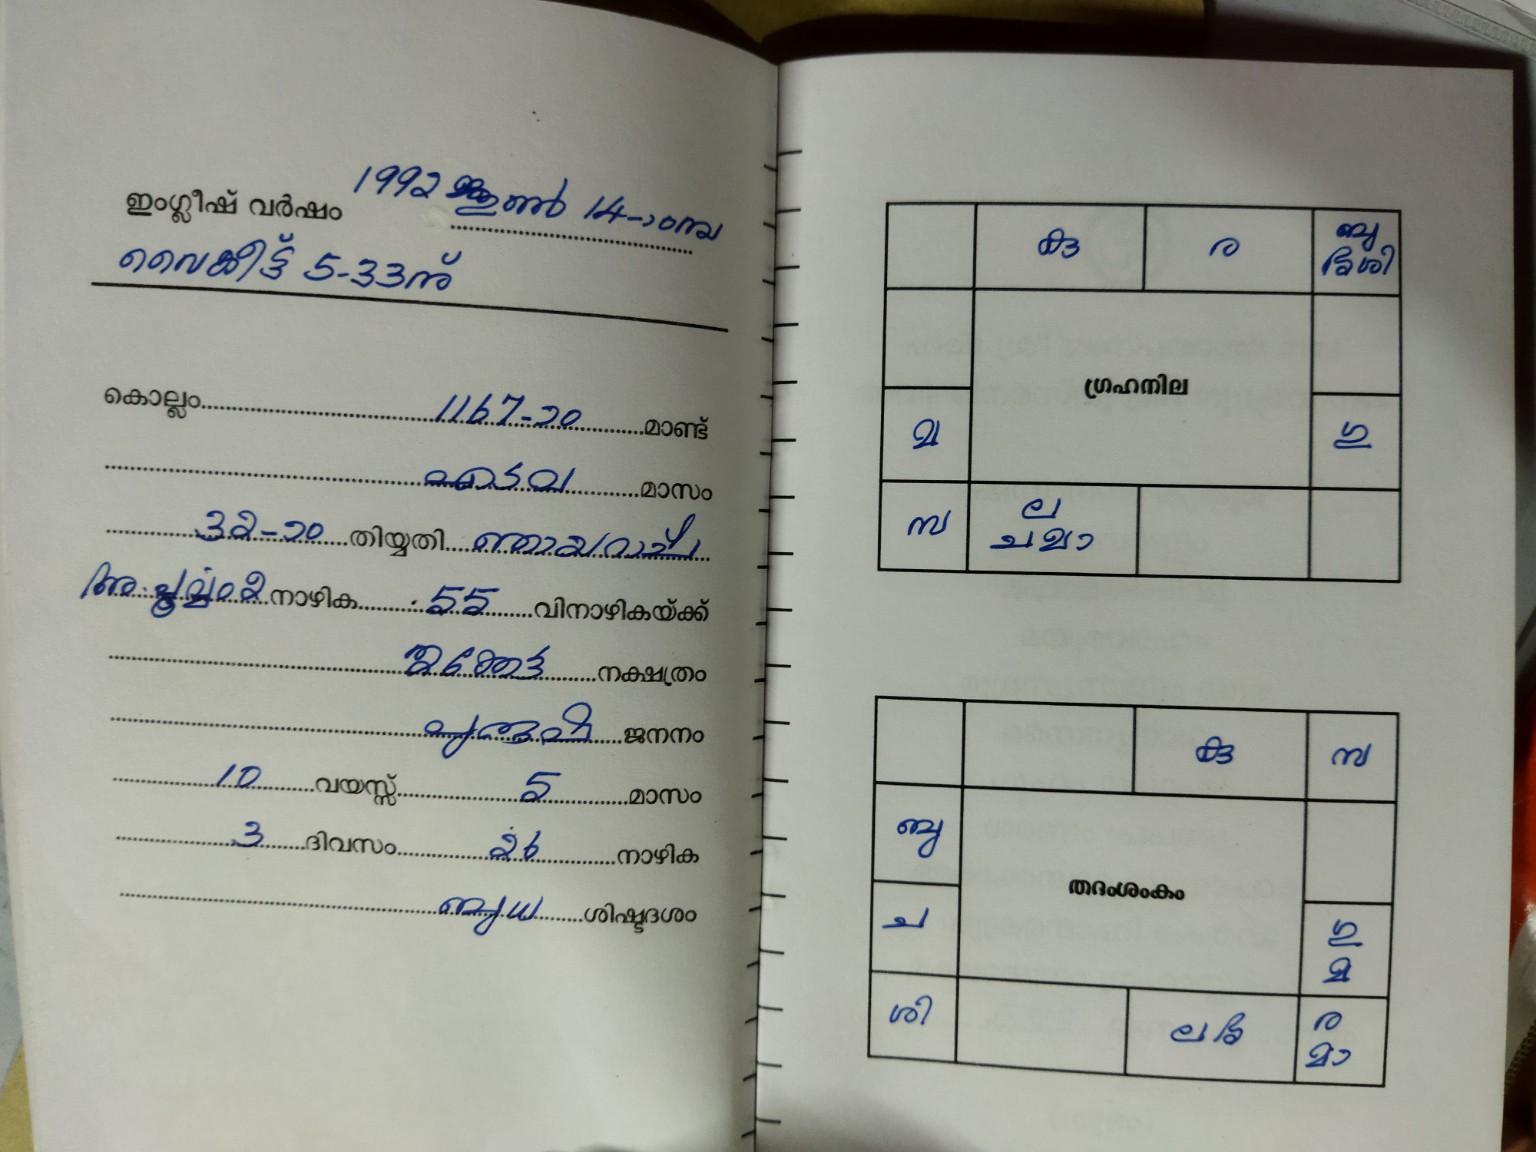 ഇംഗ്ലീഷ് വർഷം 1992 ജൂൺ 14-ാംനു
വൈകീട്ട് 5-33ന്
കൊല്ലം 1167-ാം മാണ്ട്
എടവ മാസം
32-ാം തിയ്യതി ഞായറാഴ്ച
അ. പൂർവ്വം 2 നാഴിക 55 വിനാഴികയ്ക്ക്
തൃക്കേട്ട നക്ഷത്രം
പുരുഷ ജനനം
10 വയസ്സ് 5 മാസം
3 ദിവസം 26 നാഴിക
ബുധ ശിഷ്ടദശം
കു ര ബു
ശി
ഗ്രഹനില
മ ഗു
സ ല
ചമാ
കു സ
ബു
തദംശംകം
ച ഗു
മ
ശി ല ര
മാ